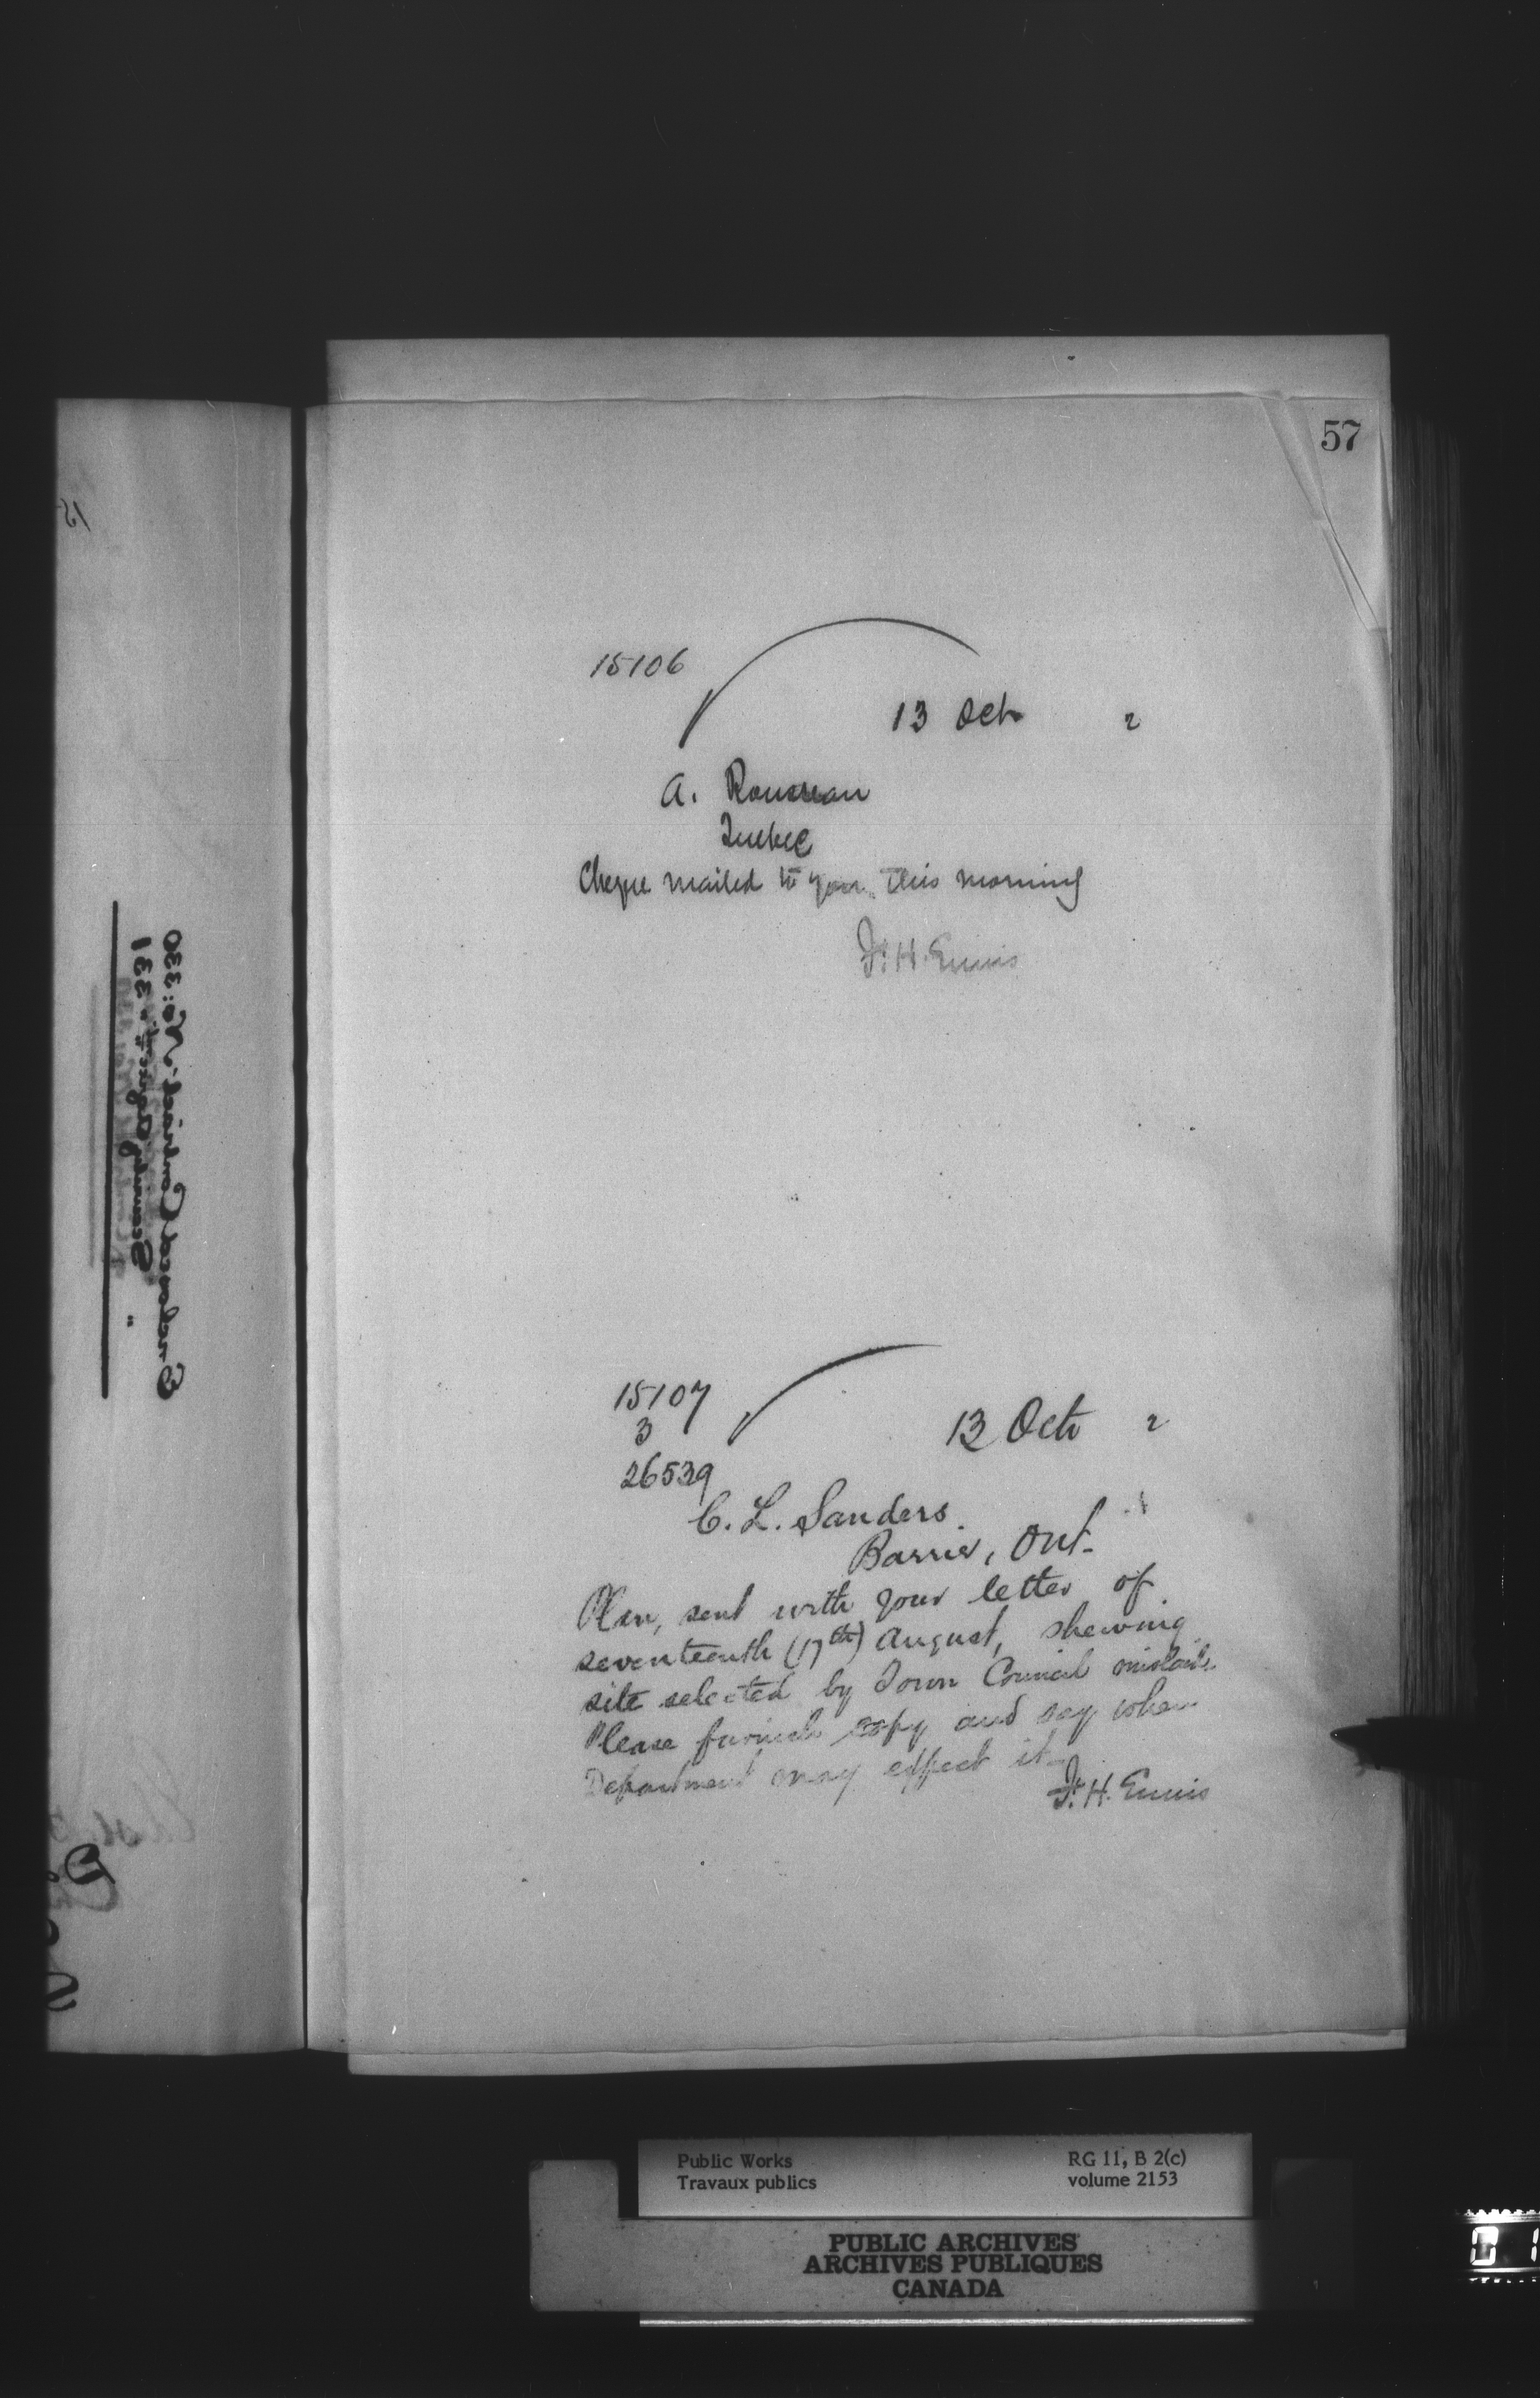 57
15106
13 Oct 2
A. Rousseau
Quebec
Cheque mailed to you this morning
F. H. Ennis
15107
3
26539
13 Oct 2
C. L. Sanders.
Barrie, Ont.
Plan, sent with your letter of
seventeenth (17th) August, shewing
site selected by Town Council mislaid.
Please furnish copy and say when
Department may expect it.
F. H. Ennis
Public Works
Travaux publics
RG 11, B 2(c)
volume 2153
PUBLIC ARCHIVES
ARCHIVES PUBLIQUES
CANADA